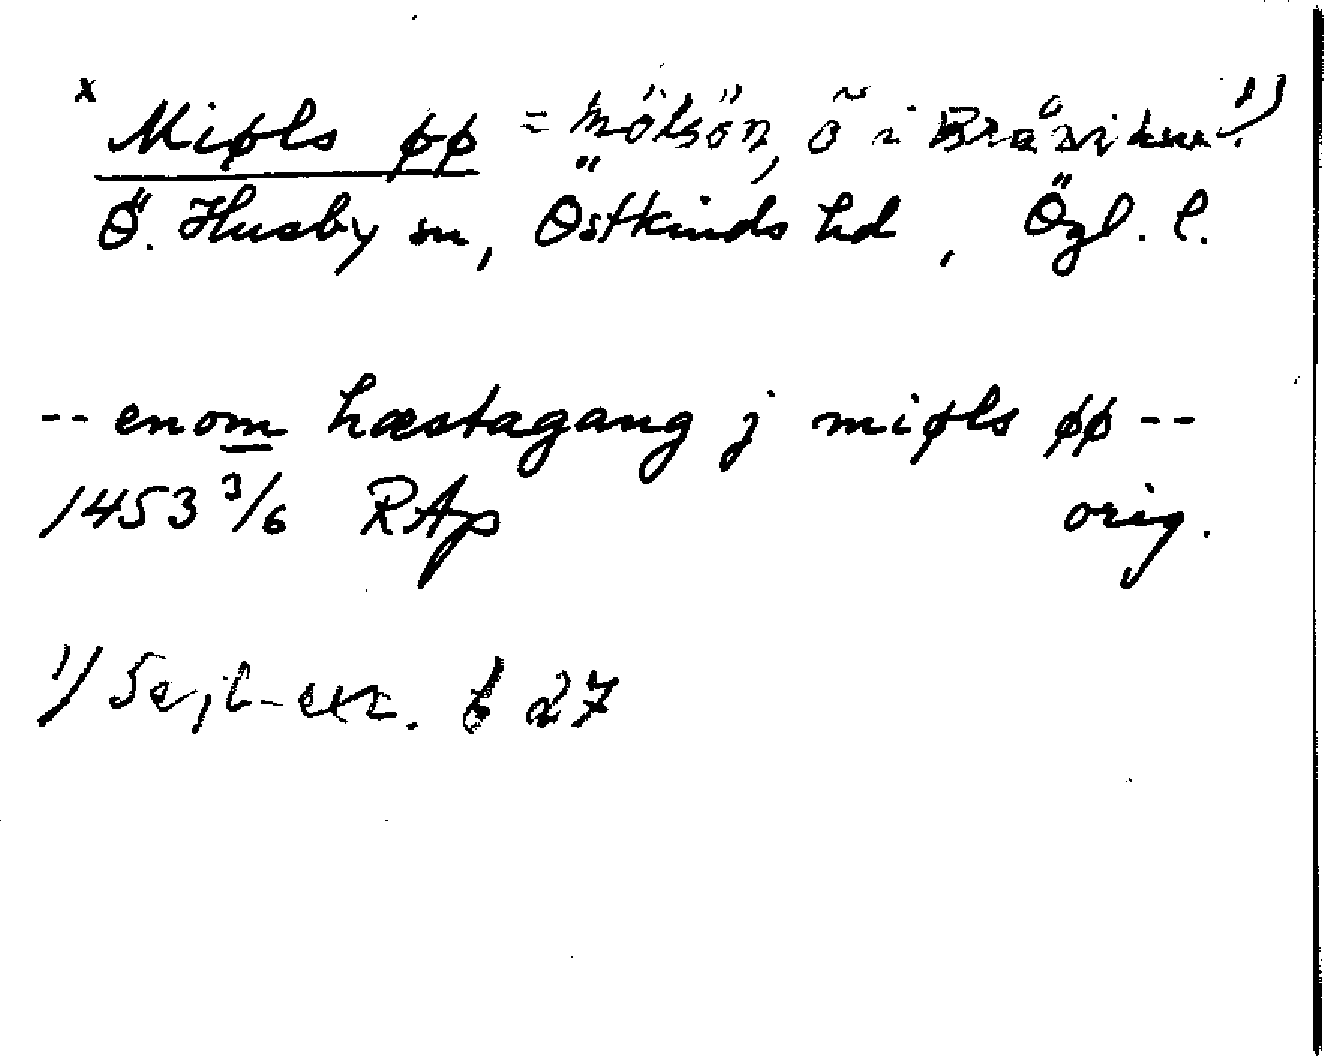 x Miøls øø = Mölsön, ö i Bråviken. 1)
Ö. Husby sn, Östkinds hd, Ögl. l.
-- enom hæstagang j miøls øø --
1453 3/6 RAp orig.
1) Sejl-etz. b 27